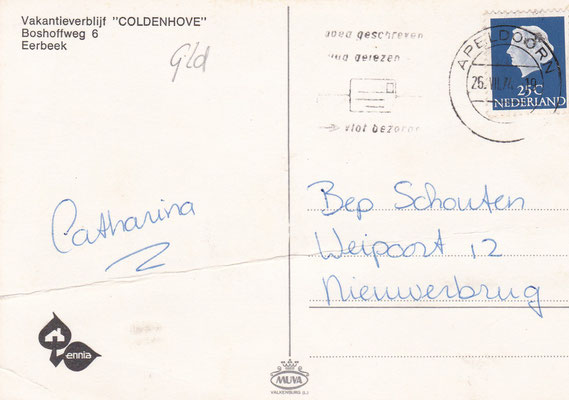 Vakantieverblijf "COLDENHOVE"
Boshoffweg 6
Eerbeek
Gld
goed geschreven
snel gelezen
vlot bezorgd
APELDOORN
25.VII.74
25C
NEDERLAND
Catharina
Bep Schouten
Weipoort 12
Nieuwerbrug
ennia
MUVA
VALKENBURG (L.)